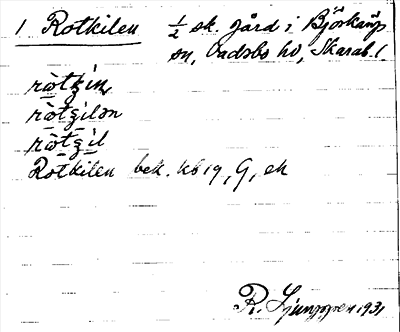 1 Rotkilen ½ sk. gård i Björkäng
sn, Vadsbo hd, Skarab. l.
ròtɧin,
ròtɧilən
ròtɧil
Rotkilen bek. kb 19, G, ek
R. Ljunggren 1931